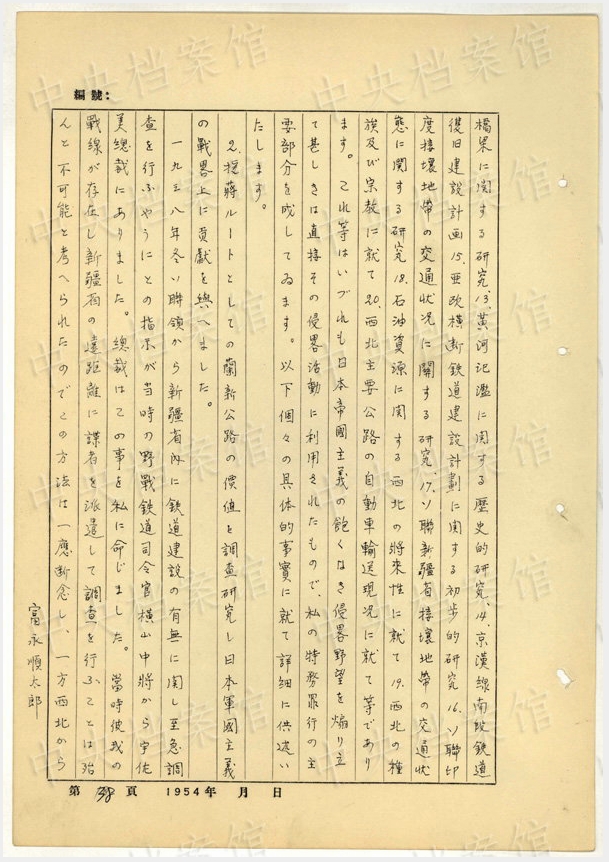 編號：
橋梁に関する研究、13、黄河氾濫に関する歴史的研究、14、京漢線南段鉄道
復旧建設計画 15、亜欧横断鉄道建設計劃に関する初歩的研究 16、ソ聯印
度接壌地帯の交通状況に関する研究、17、ソ聯新疆省接壌地帯の交通状
態に関する研究 18、石油資源に関する西北の将来性に就て 19、西北の種
族及び宗教に就て 20、西北主要公路の自動車輸送現况に就て 等であり
ます。これ等はいづれも日本帝國主義の飽くなき侵畧野望を煽り立
て甚しきは直接その侵畧活動に利用されたもので、私の特務罪行の主
要部分を成してゐます。以下個々の具体的事實に就て詳細に供述い
たします。
2. 援蔣ルートとしての蘭新公路の價値を調査研究し日本軍國主義
の戰畧上に貢献を與へました。
一九三八年冬ソ聯領から新疆省内に鉄道建設の有無に関し至急調
査を行ふやうにとの指示が当時の野戰鉄道司令官横山中将から宇佐
美總裁にありました。總裁はこの事を私に命じました。當時彼我の
戰線が存在し新疆省の遠距離に諜者を派遣して調査を行ふことは殆
んと不可能と考へられたのでこの方法は一應断念し、一方西北から
富永順太郎
第 38 頁 1954年 月 日
中央档案馆